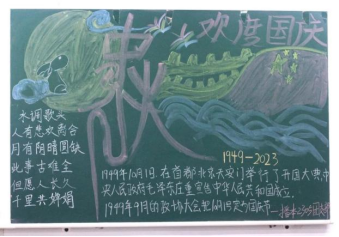 欢度国庆
水调歌头
人有悲欢离合
月有阴晴圆缺
此事古难全
但愿人长久
千里共婵娟
1949-2023
1949年10月1日，在首都北京天安门举行了开国大典，中
央人民政府毛泽东庄重宣告中华人民共和国成立，
1949年9月的政协大会把10月1定为国庆节